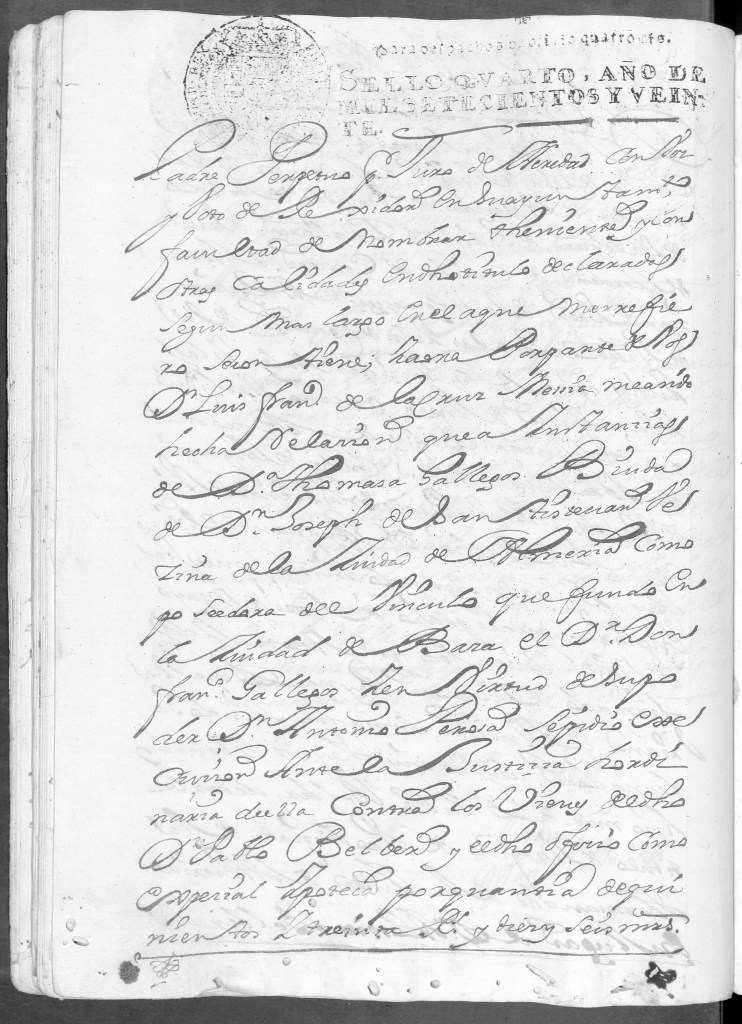 para despachos de oficio quatro mrs.
SELLO QVARTO, AÑO DE
MIL SETECIENTOS Y VEIN-
TE.
Padre Perpetuo pr. Juro de Heredad con Voz
y Voto de Rexidor en su ayuntamto.
facultad de Nombrar theniente y con
otras Calidades en dho titulo declaradas
segun mas largo en el a que me refie
ro se contiene; haora Por parte de Vos
Dn. Luis franco. de la Cruz Messia me a sido
hecha Relacion que a Instancias
de Da. Thomasa Gallegos Biuda
de Dn. Joseph de San Estevan Ve
zina de la Ziudad de Almeria como
poseedora del Vinculo que fundo en
la Ziudad de Baza el Dr. Don
franco. Gallegos y en Virtud de su po
der Dn. Antonio Perosa se pidio exe
cucion Ante la Justicia hordi
naria de ella Contra los Vienes del dho
Dn. Pablo Belber y el dho offizio como
expecial Ypoteca por quantia de qui
nientos y treinta Rs. y diez y seis mrs.